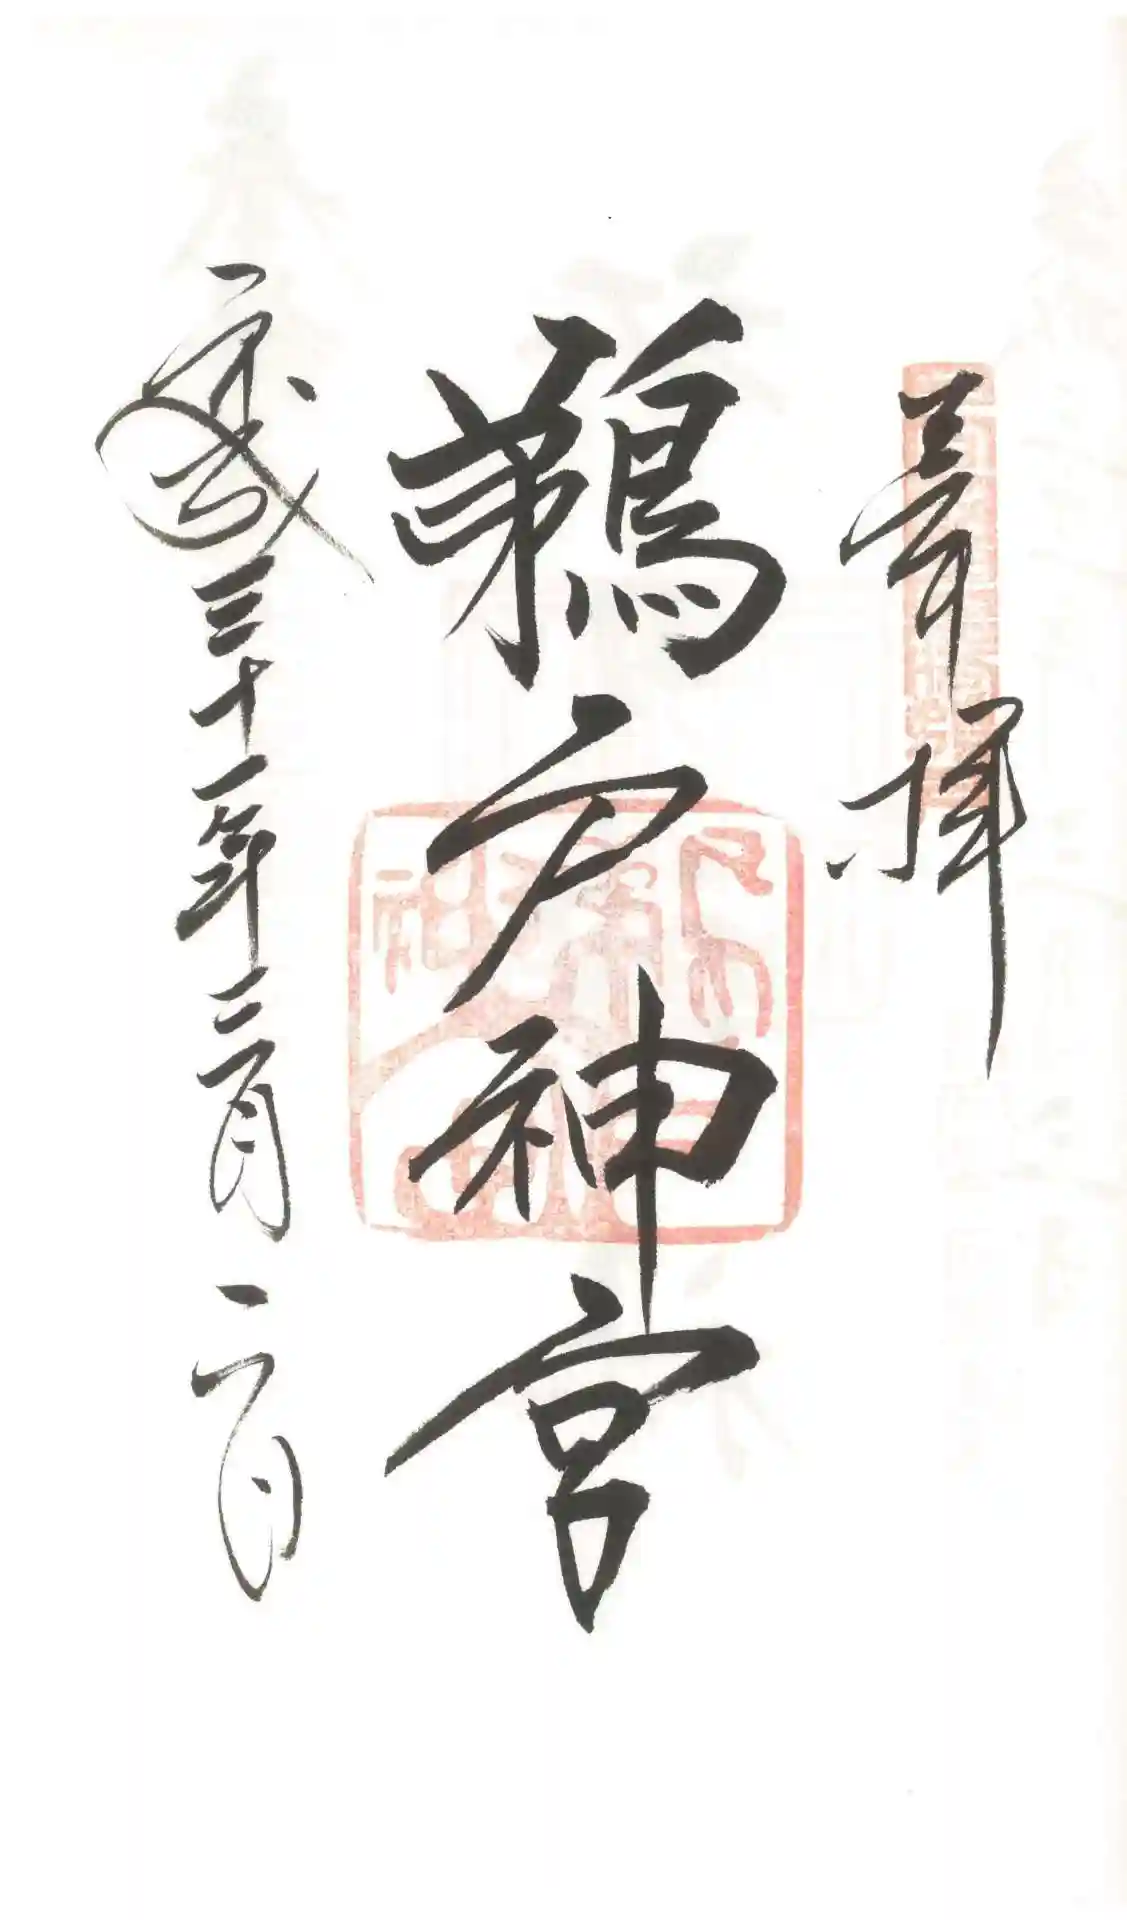 奉拝
鵜戸神宮
平成三十一年二月一日